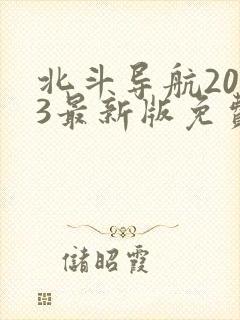 北斗导航20
3最新版免费
储昭霞